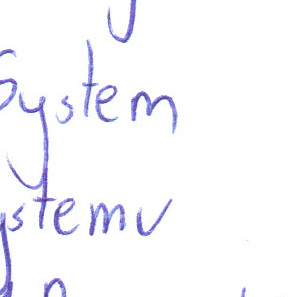 System
ystemu